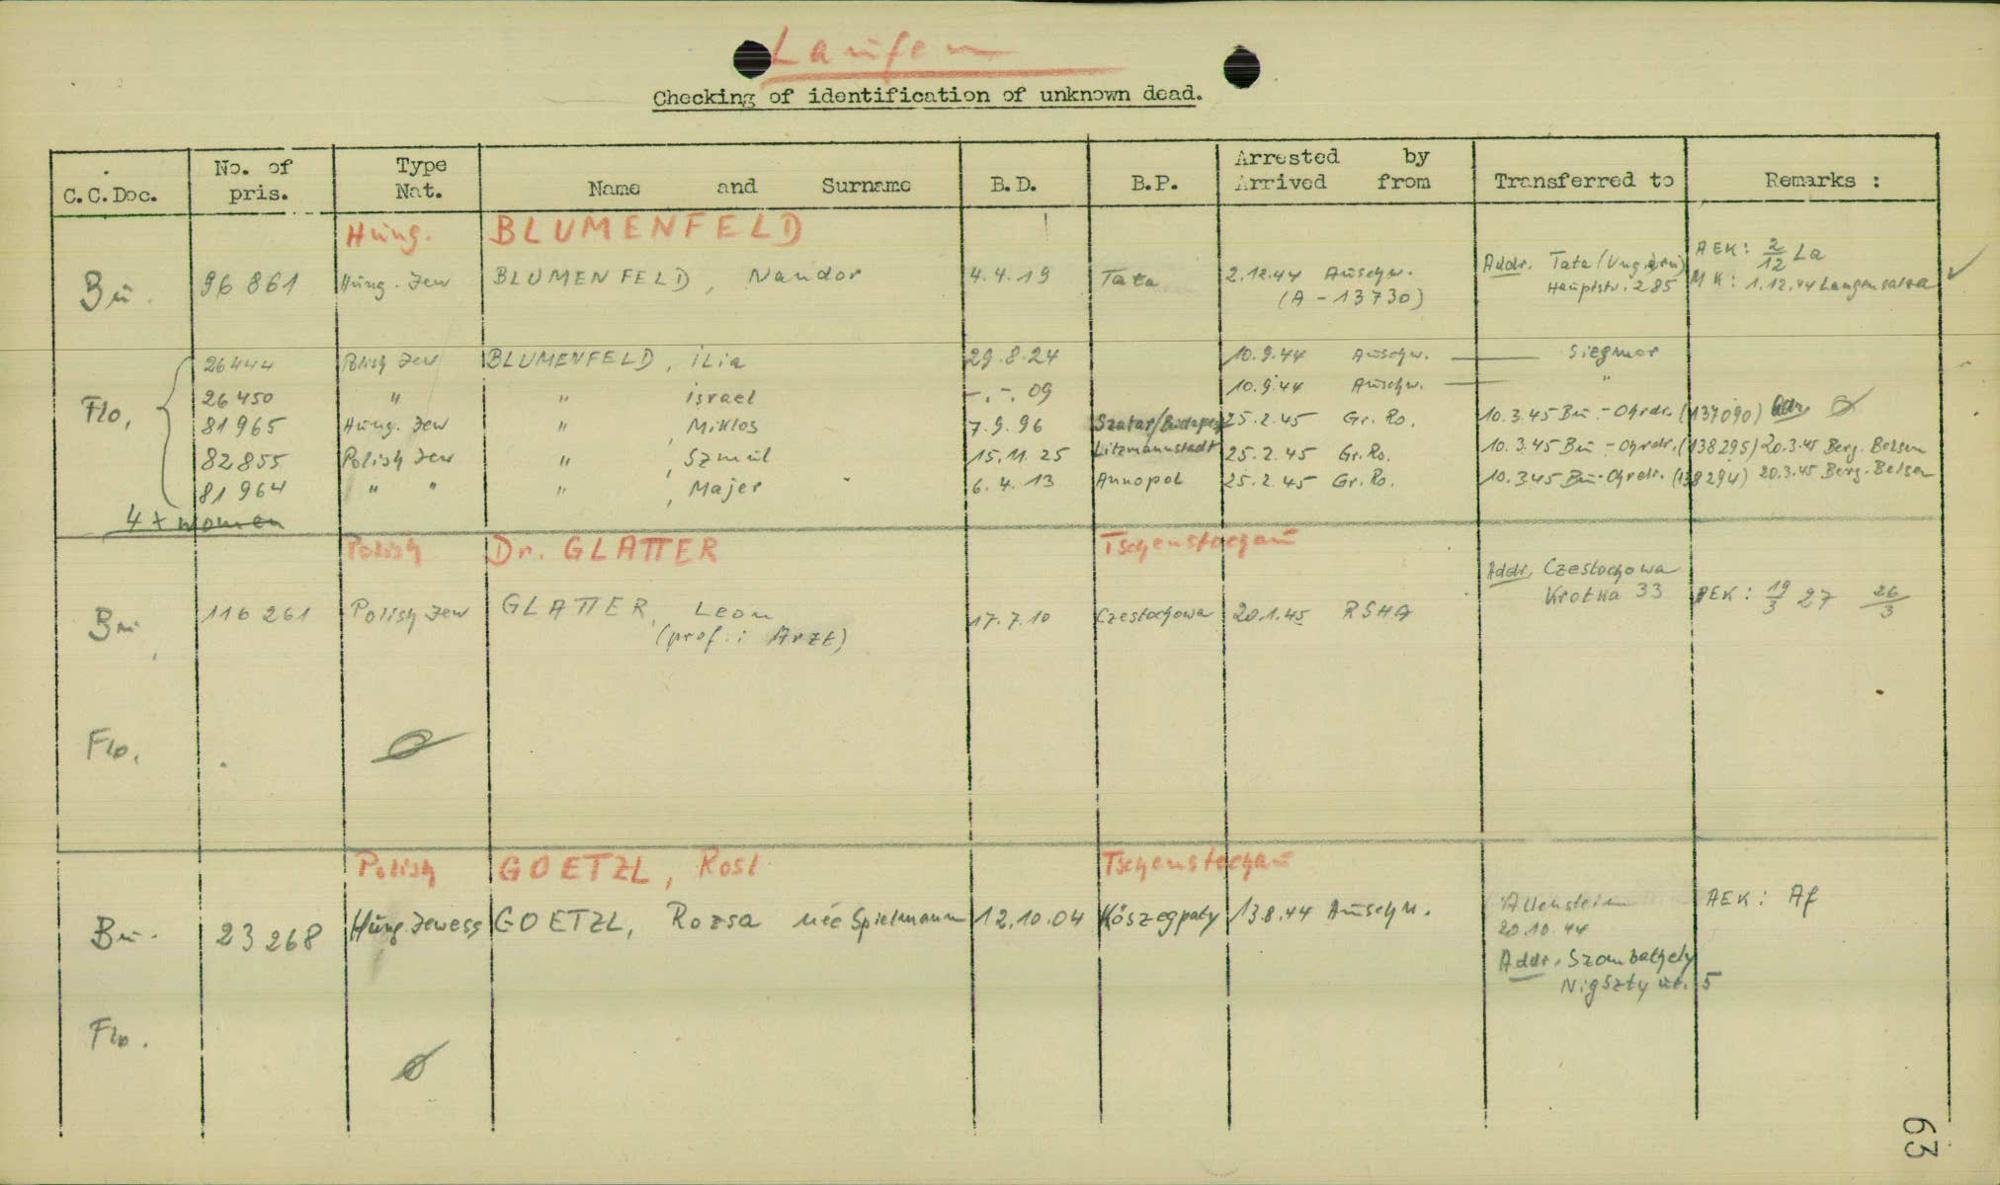 Laufen
Checking of identification of unknown dead.
C.C.Doc. No. of pris. Type Nat. Name and Surname B.D. B.P. Arrested by Arrived from Transferred to Remarks :
Hung. BLUMENFELD
Bu. 96 861 Hung. Jew BLUMENFELD, Nandor 4.4.19 Tata 2.12.44 Auschw. (A - 13730) Addr. Tata / Hauptstr. 285 AEK: 2/12 La
MK: 1.12.44 Langensalza
Flo. 26444 Polish Jew BLUMENFELD, ilia 29.8.24 10.9.44 Auschw. — Siegmar
26450 " " israel -.-. 09 10.9.44 Auschw. — "
81965 Hung. Jew " , Miklos 7.9.96 25.2.45 Gr. Ro. 10.3.45 Bu - Ohrdr. (137090)
82855 Polish Jew " , Szmul 15.11.25 Litzmannstadt 25.2.45 Gr. Ro. 10.3.45 Bu - Ohrdr. (138295) 20.3.45 Berg. Belsen
81964 " " " , Majer 6.4.13 Annopol 25.2.45 Gr. Ro. 10.3.45 Bu - Ohrdr. (138294) 20.3.45 Berg. Belsen
4 x women
Polish Dr. GLATTER Tschenstochau
Addr. Czestochowa
Krotka 33
Bu 116 261 Polish Jew GLATTER, Leon 17.7.10 Czestochowa 20.1.45 RSHA AEK: 19/3 27 26/3
(prof.: Arzt)
Flo. Ø
Polish GOETZL, Rosl Tschenstochau
Bu. 23 268 Hung. Jewess GOETZL, Rozsa née Spielmann 12.10.04 Köszegpaty 13.8.44 Auschw. Allenstein AEK: Af
20.10.44
Addr. Szombathely
5
Flo. Ø
63